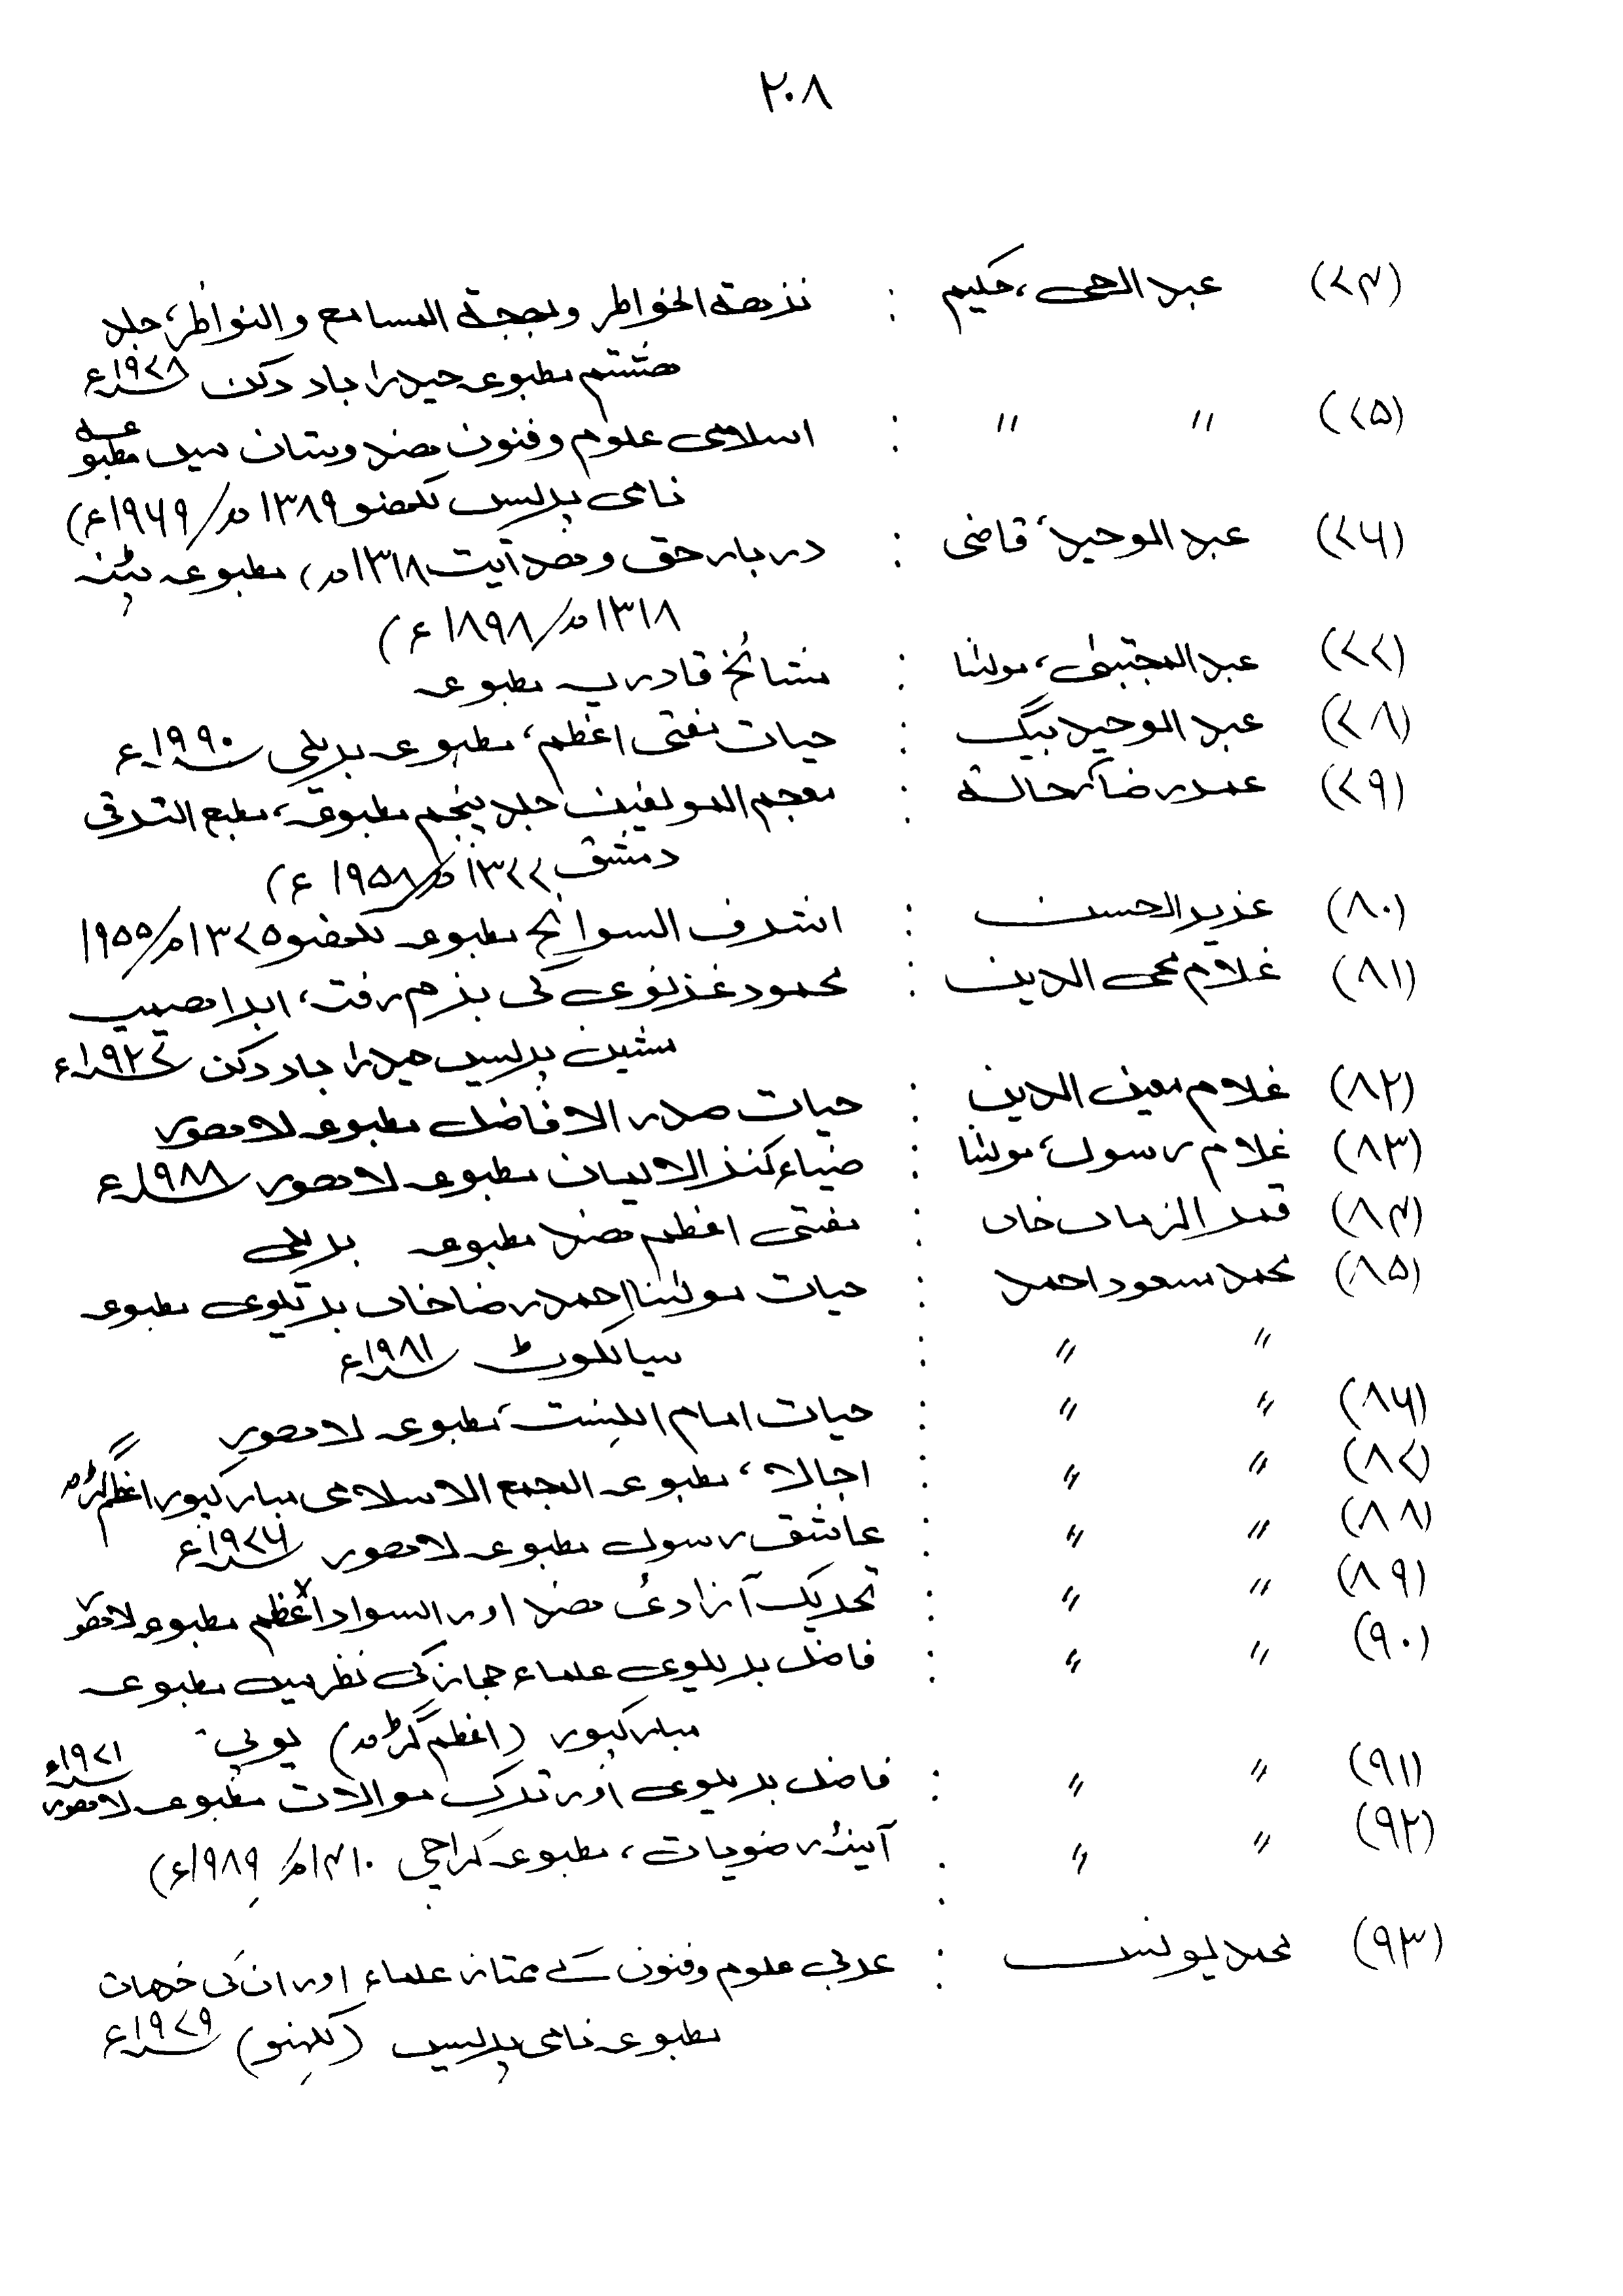 ۲۰۸
(۷۴) عبد الحی، حکیم : نزھۃ الخواطر وبھجۃ المسامع والنواظر، جلد
ھشتم مطبوعہ حیدراباد دکن ۱۹۷۸ء
(۷۵) " " : اسلامی علوم وفنون ھندوستان میں مطبوعہ
نامی پریس لکھنو ۱۳۸۹ھ/۱۹۶۹ء)
(۷۶) عبد الوحید، قاضی : دربار حق وھدآیت ۱۳۱۸ھ، مطبوعہ پٹنہ
۱۳۱۸ھ/۱۸۹۸ء)
(۷۷) عبد المجتبیٰ، مولٰنا : مشائخ قادریہ مطبوعہ
(۷۸) عبد الوحید بیگ : حیات مفتی اعظم، مطبوعہ بریلی ۱۹۹۰ء
(۷۹) عمر رضا کحالۃ : معجم المولفین جلد پنجم مطبوعہ، مطبع الترقی
دمشق ۱۳۷۷ھ/۱۹۵۸ء)
(۸۰) عزیز الحسن : اشرف السوانح مطبوعہ لکھنو ۱۳۷۵ھ/۱۹۵۵
(۸۱) غلام محی الدین : محمود غزنوی کی بزم رفت، ابراھیمیہ
مشین پریس حیدراباد دکن ۱۹۲۷ء
(۸۲) غلام معین الدین : حیات صدر الافاضل مطبوعہ لاھور
(۸۳) غلام رسول، مولٰنا : ضیاء کنز الایمان مطبوعہ لاھور ۱۹۸۸ء
(۸۴) قمر الزماں خاں : مفتی اعظم ھند مطبوعہ بریلی
(۸۵) محمد مسعود احمد : حیات مولٰنا احمد رضا خاں بریلوی مطبوعہ
" " : سیالکوٹ ۱۹۸۱ء
(۸۶) " " : حیات امام اہلسنت، مطبوعہ لاھور
(۸۷) " " : اجالا، مطبوعہ المجمع الاسلامی مبارکپور اعظم گڑھ
(۸۸) " " : عاشق رسول مطبوعہ لاھور ۱۹۷۶ء
(۸۹) " " : تحریک آزادئ ھند اور السواد الاعظم مطبوعہ لاھور
(۹۰) " " : فاضل بریلوی علماء حجاز کی نظر میں مطبوعہ
مبارکپور (اعظم گڑھ) یوپی
(۹۱) " " : فاضل بریلوی اور ترک موالات مطبوعہ لاھور ۱۹۷۱ء
(۹۲) " " : آئینۂ رضویات، مطبوعہ کراچی ۱۴۱۰ھ/۱۹۸۹ء)
(۹۳) محمد یونس : عربی علوم وفنون کے ممتاز علماء اور ان کی خدمات
مطبوعہ نامی پریس (لکہنو) ۱۹۷۹ء